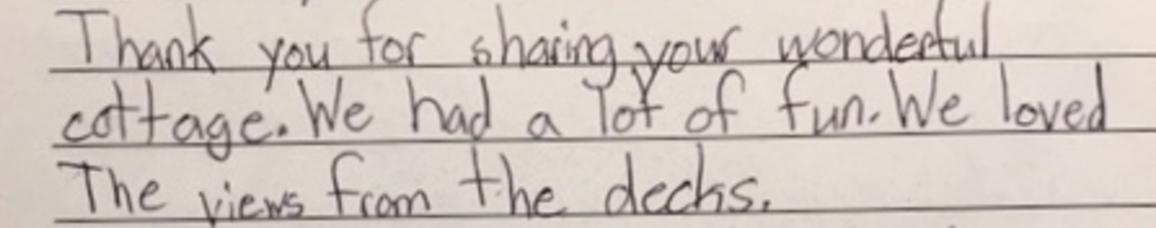 Thank you for sharing your wonderful
cottage. We had a lot of fun. We loved
The views from the decks.